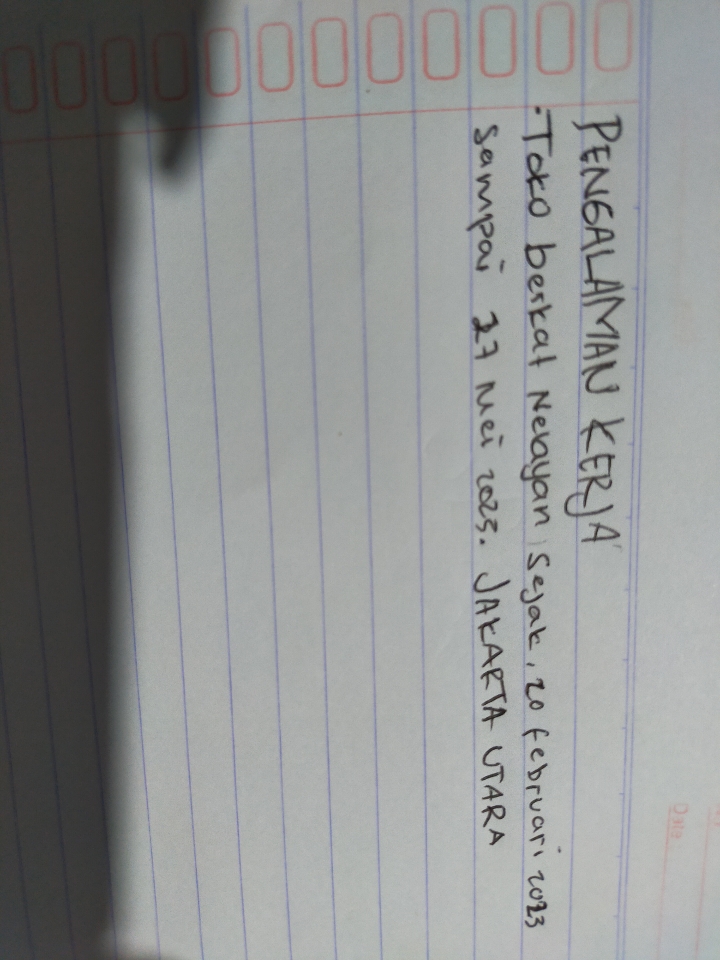 PENGALAMAN KERJA
·Toko berkat Nelayan, Sejak, 20 februari 2023
sampai 27 Mei 2025. JAKARTA UTARA
Date